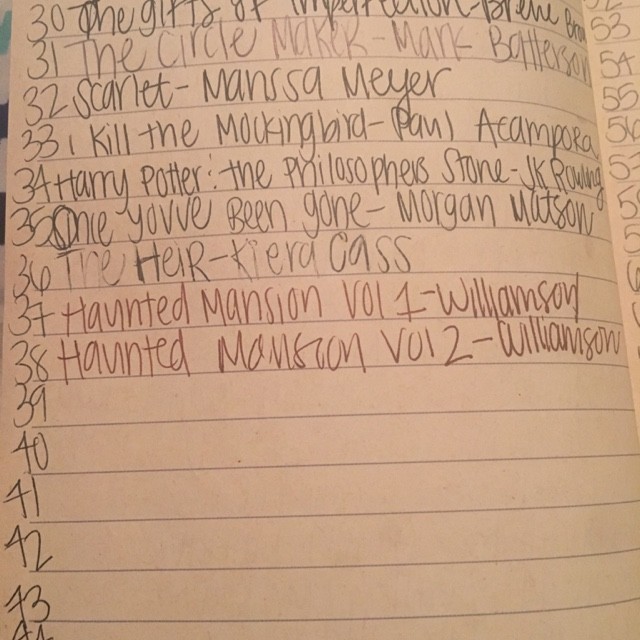 30 The gifts of Imperfection-Brene Brow
31 The Circle Maker-Mark Batterson
32 Scarlet-Marissa Meyer
33 I Kill the Mockingbird-Paul Acampora
34 Harry Potter: the Philosophers Stone-JK Rowling
35 Once you've Been gone-Morgan Matson
36 The Heir-Kiera Cass
37 Haunted Mansion Vol 1-Williamson
38 Haunted Mansion Vol 2-Williamson
39
40
41
42
43
44
52
53
54
55
56